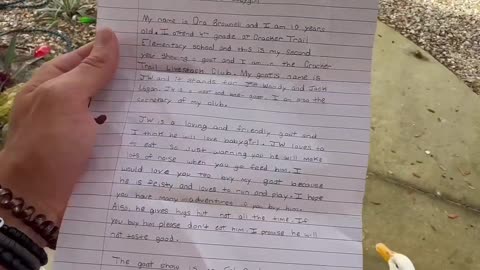 babygirl
My name is Ora Brownell and I am 10 years
old. I attend 4th grade at Cracker Trail
Elementary School and this is my second
year showing a goat and I am in the Cracker
Trail Livestock Club. My goats name is
JW and it stands for JW Woody and Jack
Logan. JW is a goat. I am also the
secretary of my club.
JW is a loving and friendly goat and
I think he will love babygirl. JW loves to
to eat. So Just warning you he will make
lots of noise when you go feed him. I
would love you too buy my goat because
he is zesty and loves to run and play. I hope
you have many adventures if you buy him.
Also, he gives hugs bit not all the time. If
you buy him please don't eat him. I promise he will
not taste good.
The goat show is on